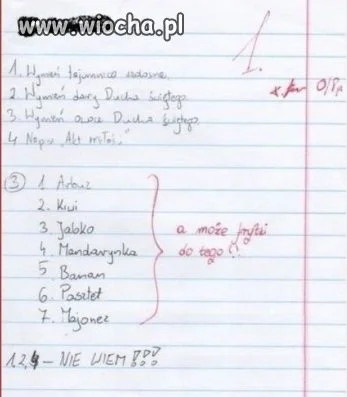 www.wiocha.pl
1.
1. Wymień tajemnice radosne.
0/8p
2. Wymień dary Ducha świętego.
3. Wymień owoce Ducha świętego.
4 Napisz "Akt miłości"
③ 1 Arbuz
2. Kiwi
3. Jabko
4. Mandarynka
5 Banan
6. Pasztet
7. Majonez
a może frytki
do tego (?)
1,2,4 - NIE WIEM!!!